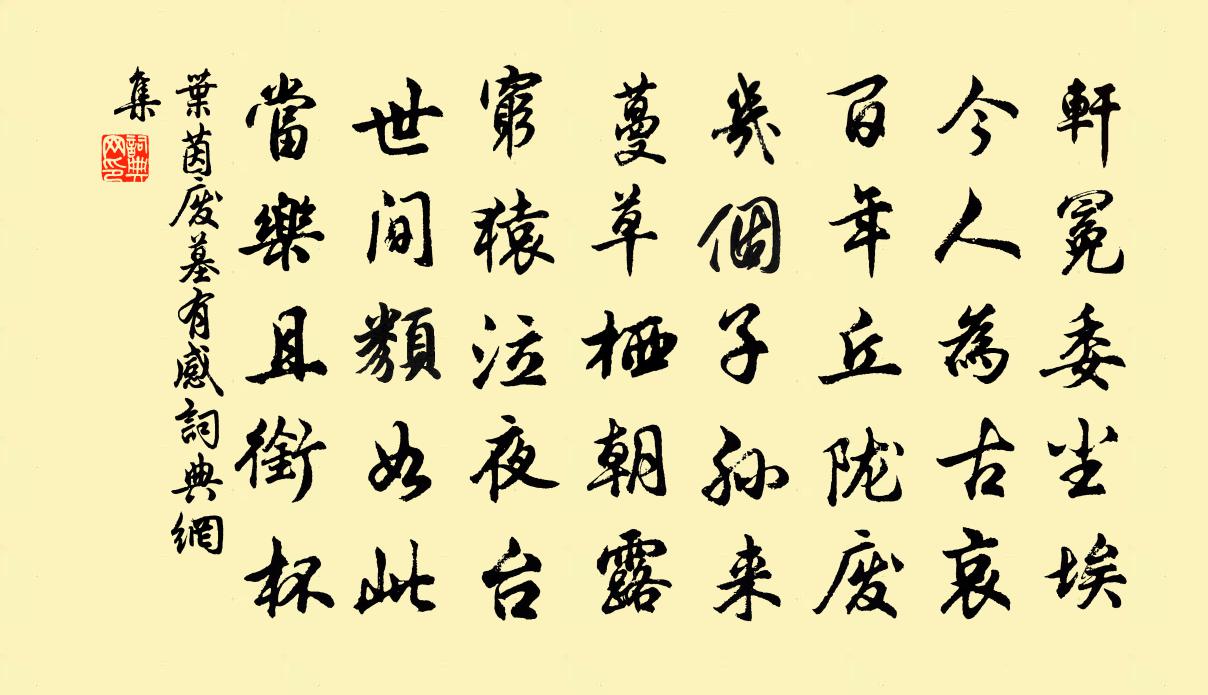 軒冕委尘埃
今人為古哀
百年丘陇废
幾個子孙来
蔓草栖朝露
窮猿泣夜台
世间類如此
當樂且銜杯
葉茵废墓有感詞典網
集
詞典網印